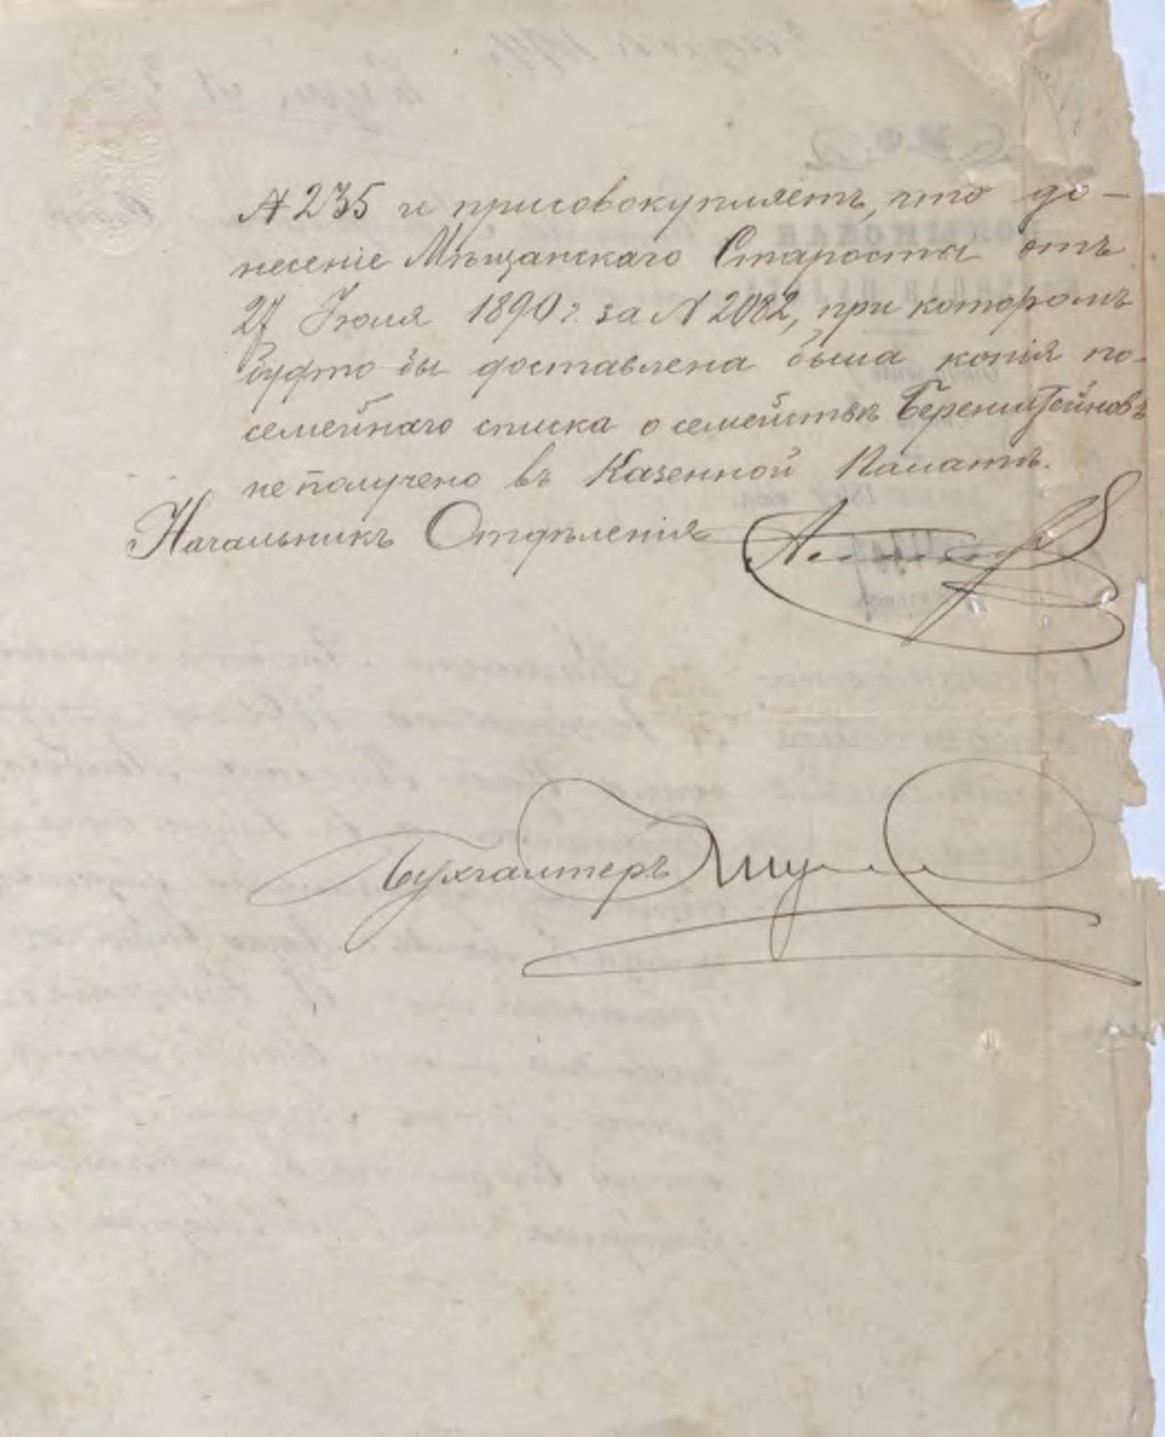 № 235 и присовокупляетъ, что до-
несеніе Мѣщанскаго Старосты отъ
27 Іюля 1890 г. за № 2082, при которомъ
будто бы доставлена была копія по-
семейнаго списка о семействѣ Беренштейновъ
не получено въ Казенной Палатѣ.
Начальникъ Отдѣленія
Бухгалтеръ